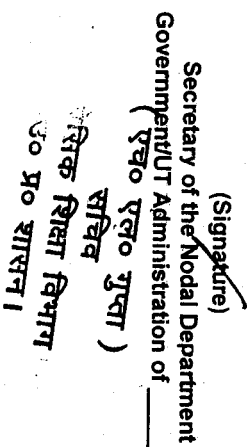 (Signature)
Secretary of the Nodal Department
Government/UT Administration of
( एच० एल० गुप्ता )
सचिव
सिक शिक्षा विभाग
उ० प्र० शासन।